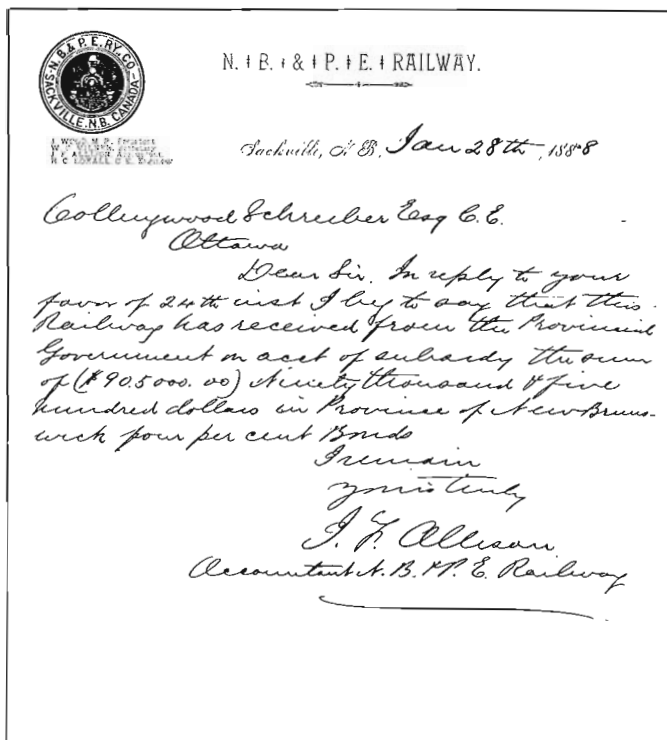 N. B. & P. E. RY. CO.
SACKVILLE, N.B. CANADA
N. B. & P. E. RAILWAY.
J. Wood M.P. President
H C
Sackville, N.B. Jan 28th, 1888
Collingwood Schreiber Esq C.E.
Ottawa
Dear Sir. In reply to your
favor of 24th inst I beg to say that this
Railway has received from the Provincial
Government on acct of subsidy the sum
of ($90.5000.00) Ninety thousand & five
hundred dollars in Province of New Bruns-
wick four per cent Bonds
I remain
Yours truly
J. F. Allison
Accountant N. B. & P. E. Railway